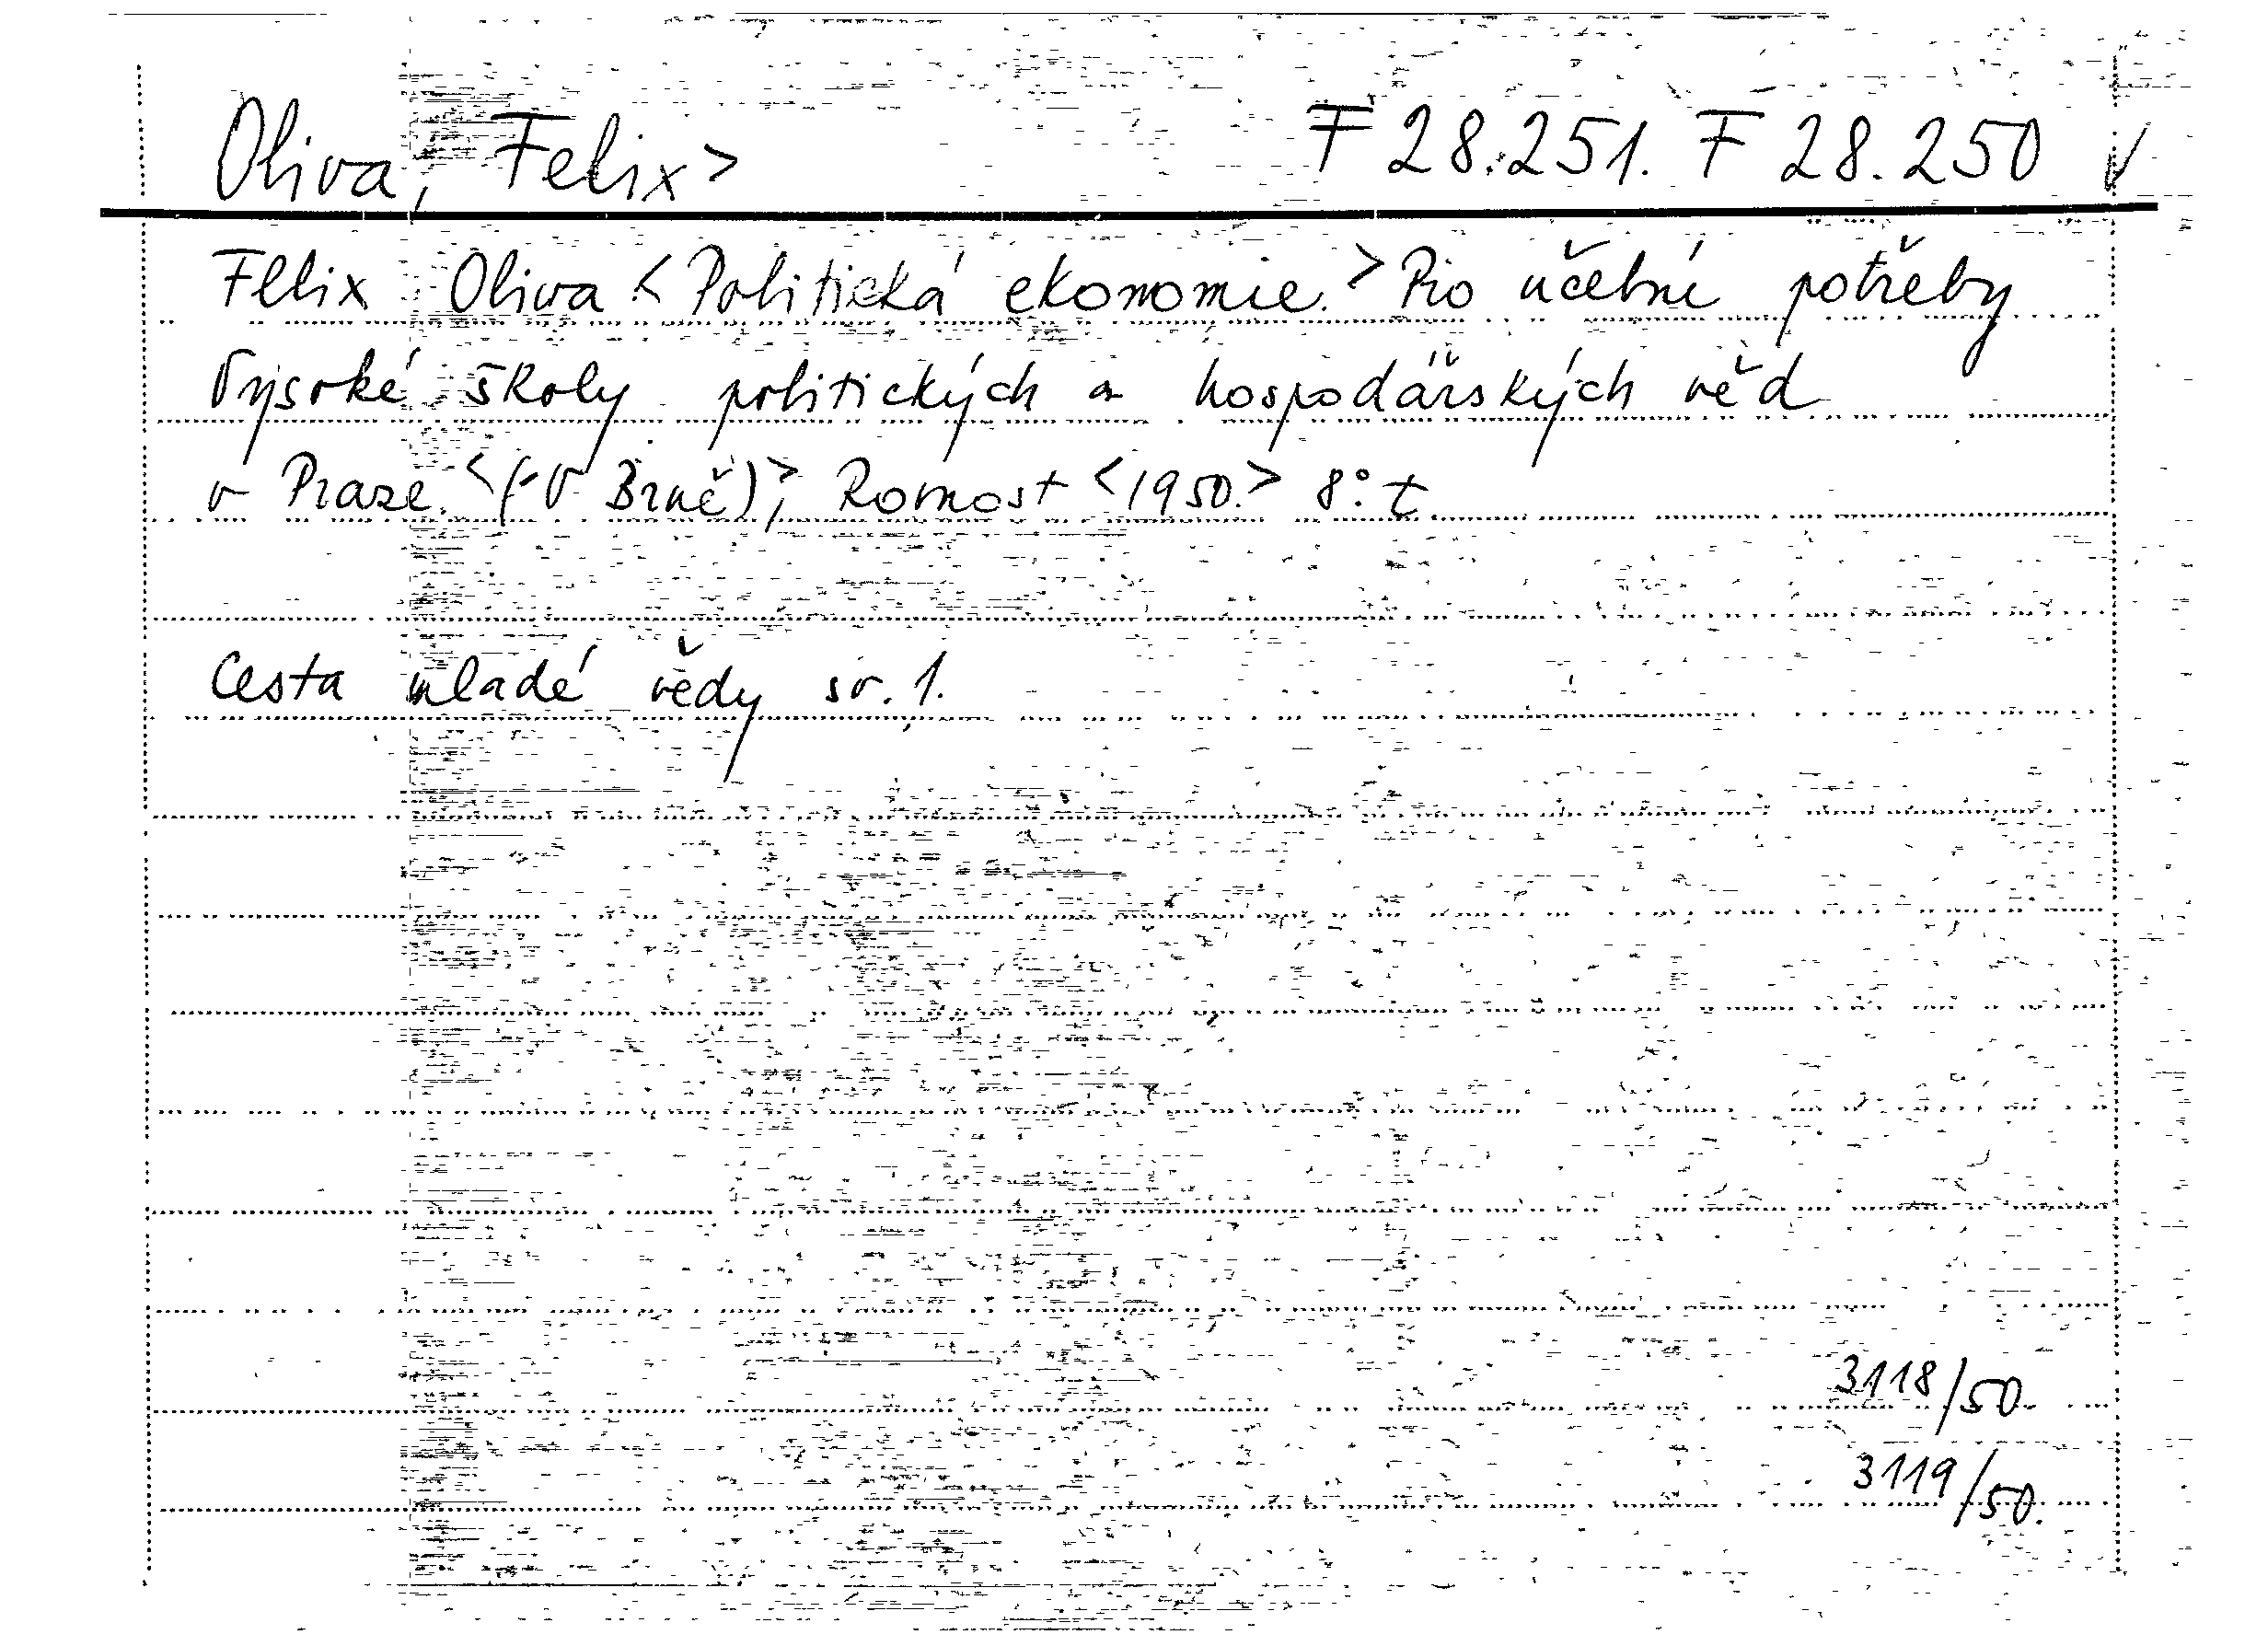 Oliva, Felix> F 28.251. F 28.250 ✓
Felix Oliva <Politická ekonomie.> Pro učební potřeby
Vysoké školy politických a hospodářských věd
v Praze. <(-V Brně)>, Rovnost <1950.> 8° t.
Cesta mladé vědy sv. 1.
3118/50.
3119/50.